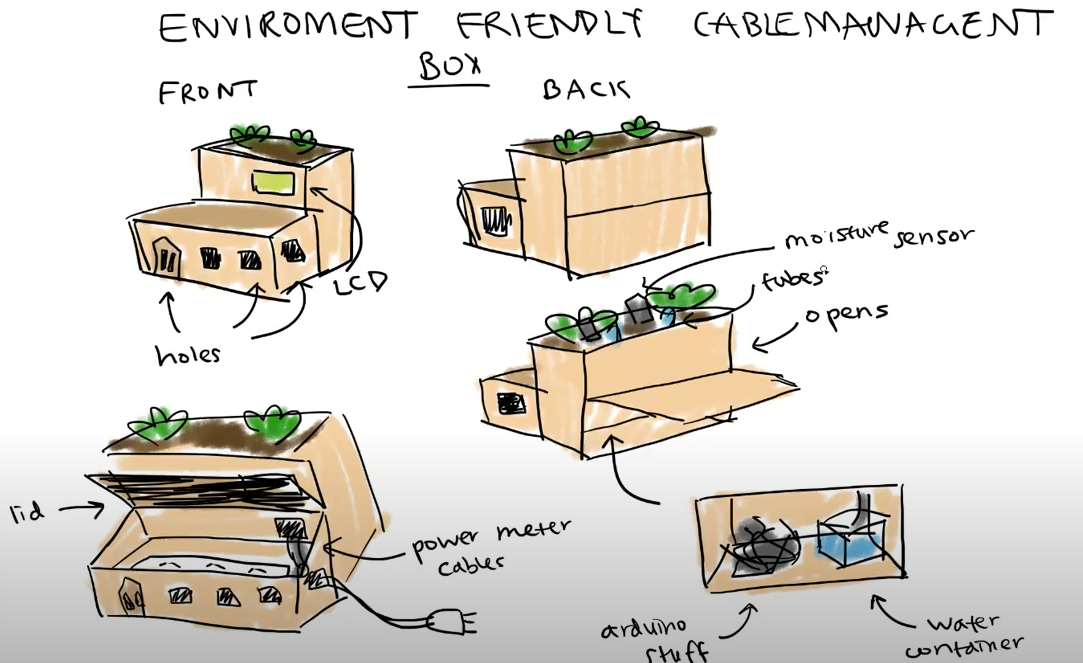 ENVIROMENT FRIENDLY CABLEMANAGENT
BOX
FRONT
BACK
LCD
holes
moisture sensor
tubes
opens
lid
power meter
cables
arduino
stuff
water
container